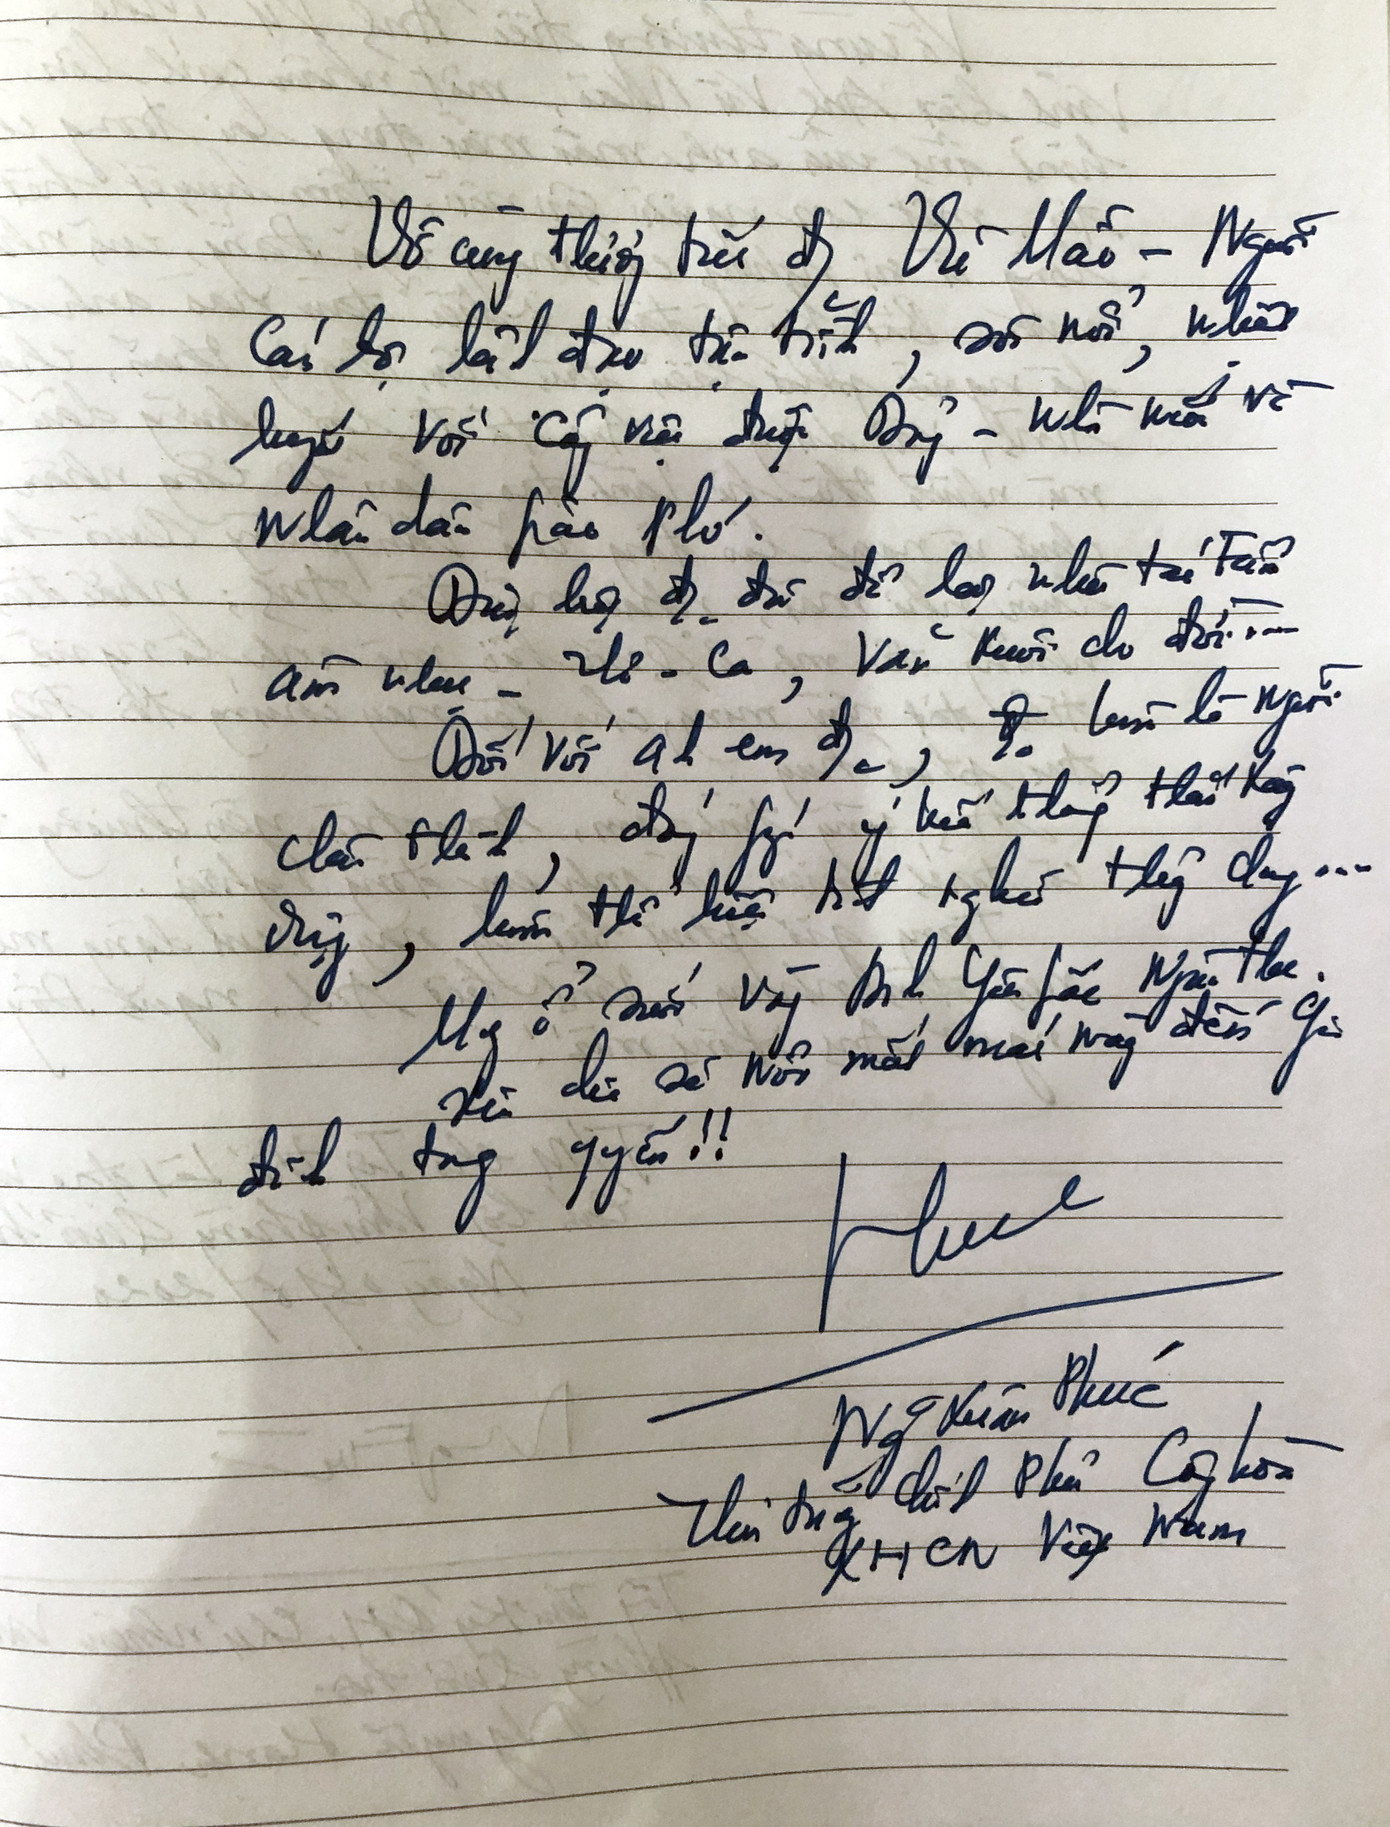 Vô cùng thương tiếc đ/c Vũ Mão - Người
Cán bộ lãnh đạo tâm tình, sôi nổi, nhiệt
huyết với Công việc được Đảng - Nhà nước và
Nhân dân giao Phó.
Đồng đ/c đã để lại nhiều tác Phẩm
âm nhạc - Thơ - Ca, Văn xuôi cho đời...
Đối với anh em đ/c, đ/c luôn là người
chân thành, đóng góp ý kiến thẳng thắn xây
dựng, luôn thể hiện tình nghĩa thủy chung...
Mong ở suối vàng Anh Yên giấc Ngàn thu.
Xin chia sẻ Nỗi mất mát này đến Gia
đình tang quyến!!
Ng Xuân Phúc
Thủ tướng chính Phủ Cộng hòa
XHCN Việt Nam